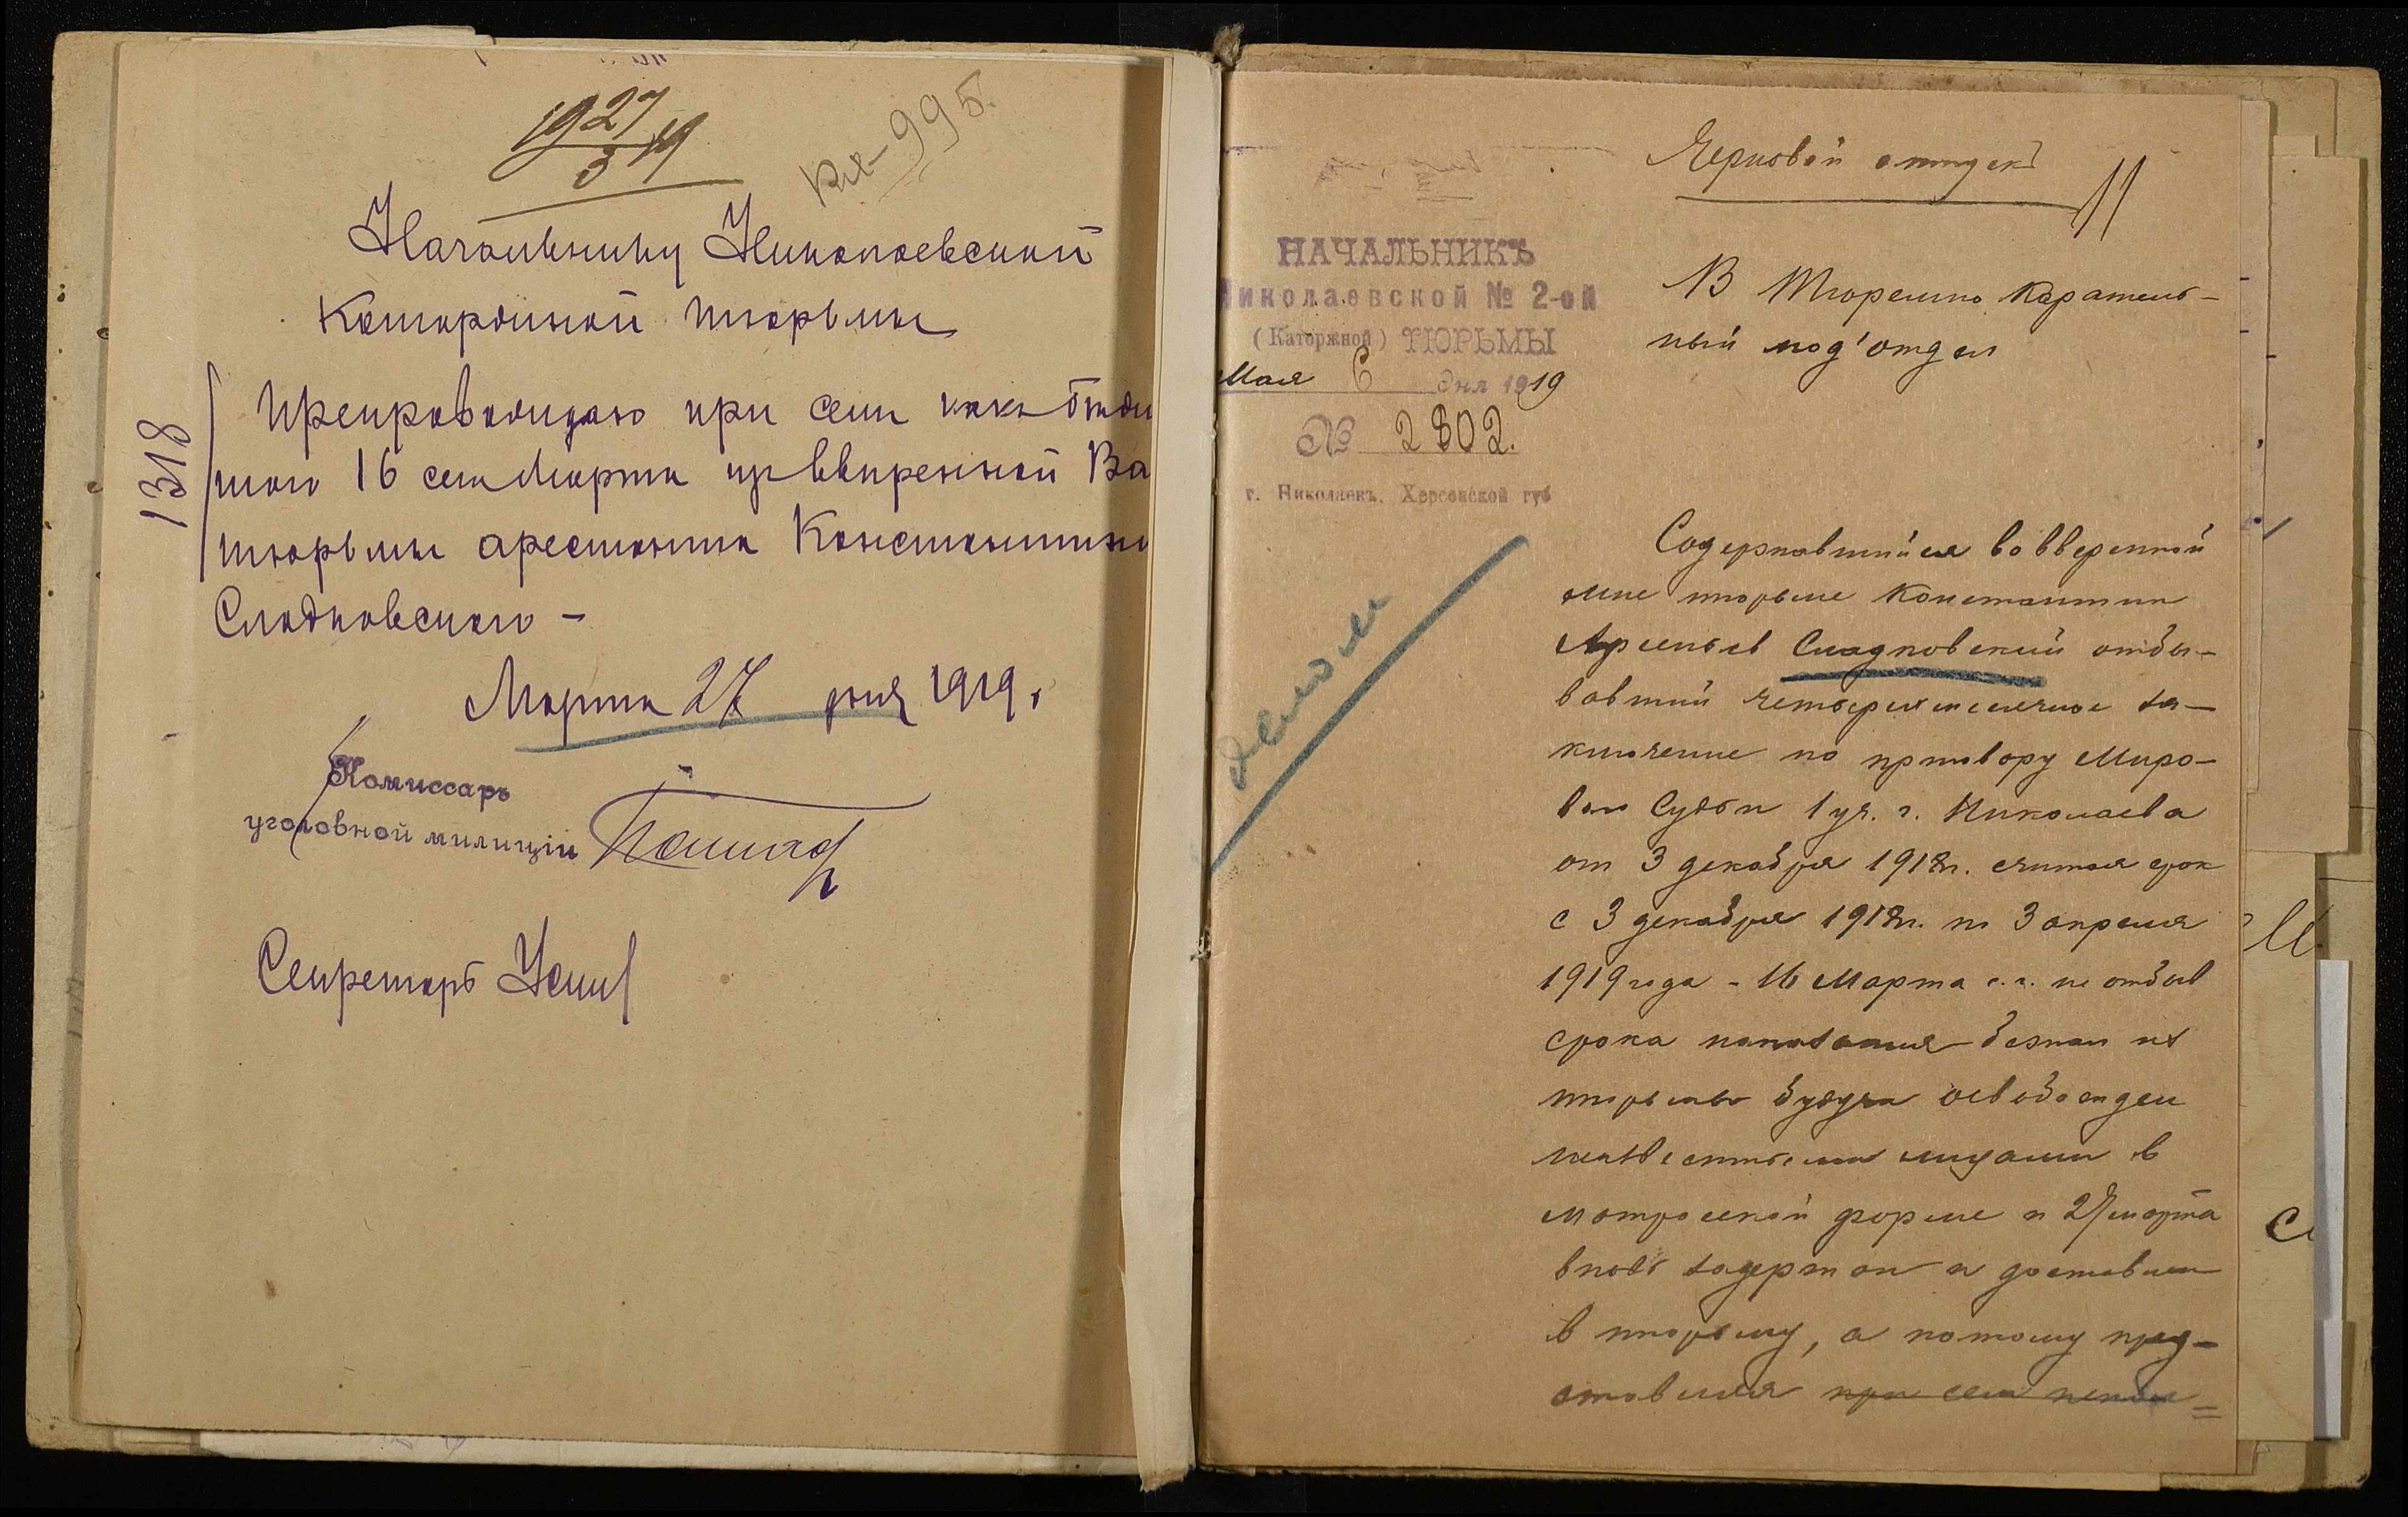 1927/3 19
Кл-995.
Начальнику Николаевской
Каторжной тюрьмы
1318
Препровождаю при сем как бежав
шаго 16 сего Марта из вверенной Ва
тюрьмы арестанта Константина
Сладковского –
Марта 27 дня 1919 г
Комиссаръ
уголовной милиціи
Секретарь
Черновой отпуск
11
НАЧАЛЬНИКЪ
Николаевской № 2-ой
(Каторжной) ТЮРЬМЫ
Мая 6 дня 1919
№ 2802.
г. Николаевъ, Херсонской губ
В Тюремно Каратель-
ный под'отдел
Содержавшийся во вверенной
мне тюрьме Константин
Арсеньев Сладковский отбы-
вавший четырехмесячное за-
ключение по приговору Миро-
вого Судьи 1 уч. г. Николаева
от 3 декабря 1918 г. считая срок
с 3 декабря 1918 г. по 3 апреля
1919 года - 16 Марта с. г. не отбыв
срока наказания бежал из
тюрьмы будучи освобожден
неизвестными лицами в
матросской форме и 27 марта
вновь задержан и доставлен
в тюрьму, а потому пред-
ставляя при сем